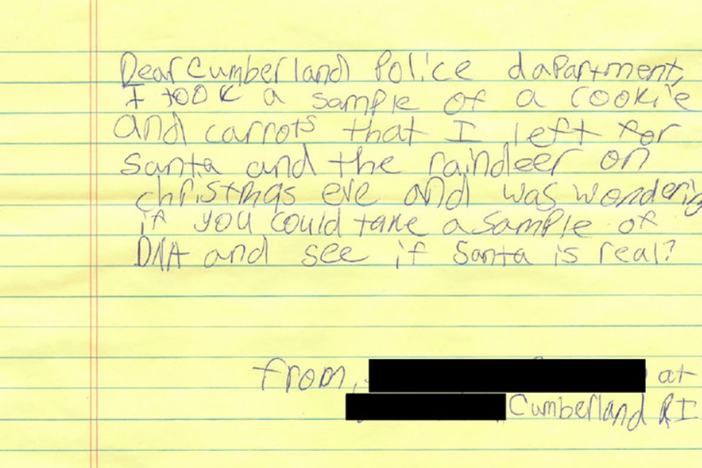 Dear Cumberland Police dapartment,
I took a sample of a cookie
and carrots that I left for
Santa and the raindeer on
christmas eve and was wonderig
if you could take a sample of
DNA and see if Santa is real?
from,
at
Cumberland RI